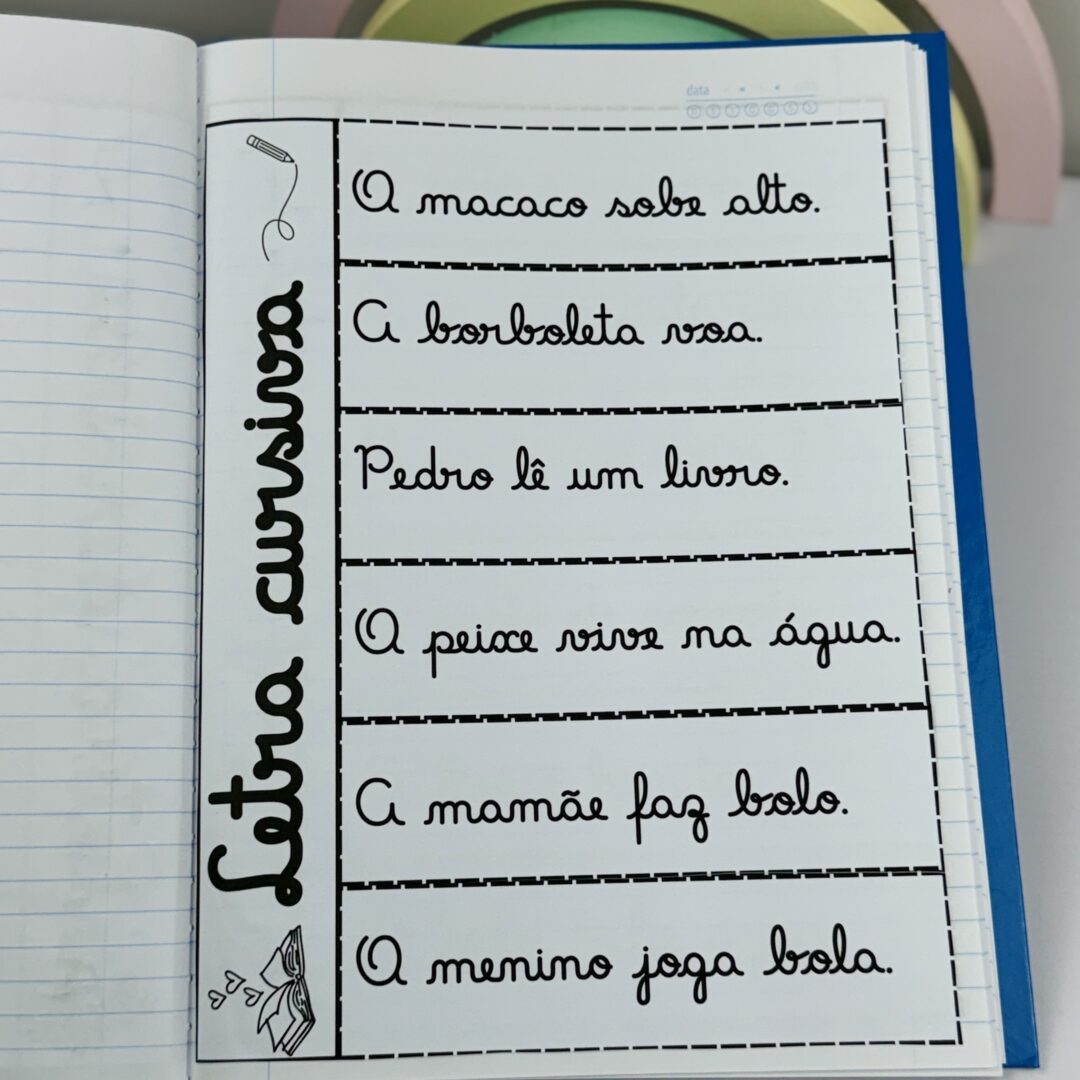 data
D S T Q Q S S
Letra cursiva
O macaco sobe alto.
A borboleta voa.
Pedro lê um livro.
O peixe vive na água.
A mamãe faz bolo.
O menino joga bola.